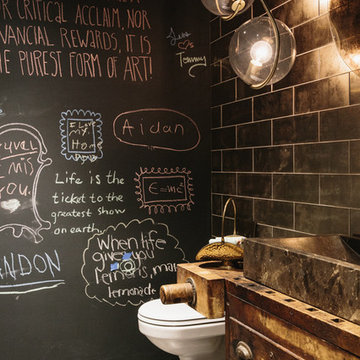 R CRITICAL ACCLAIM, NOR
NANCIAL REWARDS, IT IS
HE PUREST FORM OF ART!
Tommy
I
Love
my
Home
Aidan
miss
you.
Life is the
ticket to the
greatest show
on earth.
E=mc²
NDON
When life
give you
lemons, make
lemonade